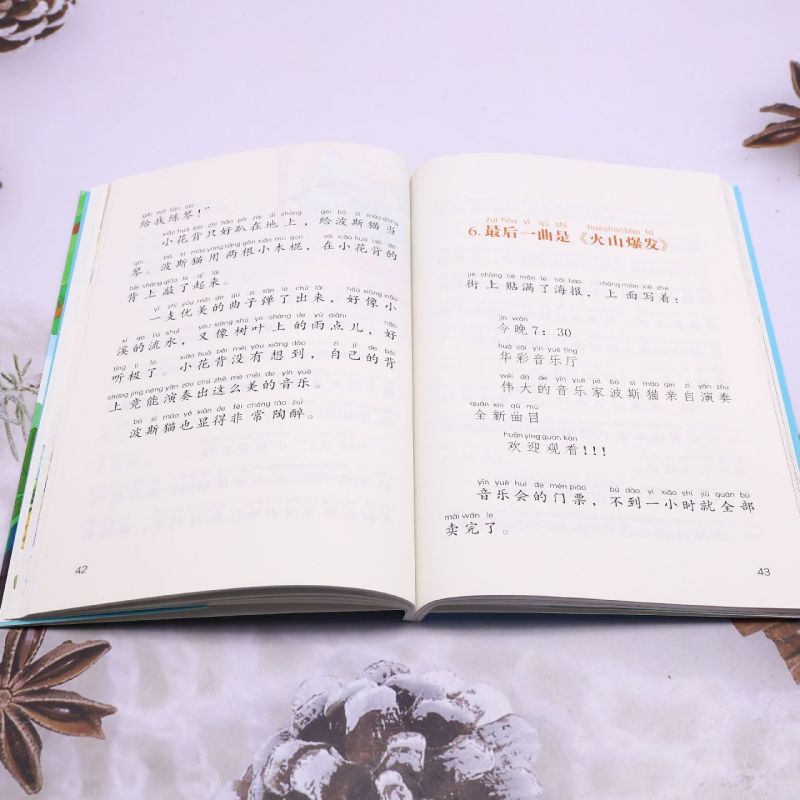 gěi wǒ liàn qín
给我练琴！”
xiǎo huā bēi zhǐ hǎo pā zài dì shàng gěi bō sī māo dāng
小花背只好趴在地上，给波斯猫当
qín bō sī māo yòng liǎng gēn xiǎo mù gùn zài xiǎo huā bēi de
琴。波斯猫用两根小木棍，在小花背的
bēi shàng qiāo le qǐ lái
背上敲了起来。
yì zhī yōu měi de qǔ zi tán le chū lái hǎo xiàng xiǎo
一支优美的曲子弹了出来，好像小
xī de liú shuǐ yòu xiàng shù yè shàng de yǔ diǎnr hǎo
溪的流水，又像树叶上的雨点儿，好
tīng jí le xiǎo huā bēi méi yǒu xiǎng dào zì jǐ de bēi
听极了。小花背没有想到，自己的背
shàng jìng néng yǎn zòu chū zhè me měi de yīn yuè
上竟能演奏出这么美的音乐。
bō sī māo yě xiǎn de fēi cháng táo zuì
波斯猫也显得非常陶醉。
42
zuì hòu yì qǔ shì huǒ shān bào fā
6.最后一曲是《火山爆发》
jiē shàng tiē mǎn le hǎi bào shàng miàn xiě zhe
街上贴满了海报，上面写着：
jīn wǎn
今晚7：30
huá cǎi yīn yuè tīng
华彩音乐厅
wěi dà de yīn yuè jiā bō sī māo qīn zì yǎn zòu
伟大的音乐家波斯猫亲自演奏
quán xīn qǔ mù
全新曲目
huān yíng guān kàn
欢迎观看！！！
yīn yuè huì de mén piào bú dào yì xiǎo shí jiù quán bù
音乐会的门票，不到一小时就全部
mài wán le
卖完了。
43